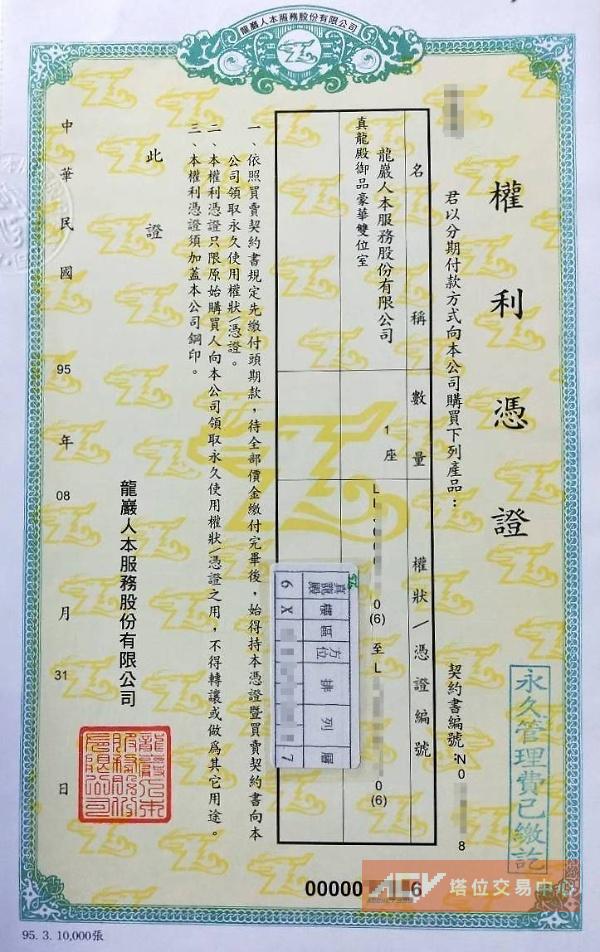 龍巖人本服務股份有限公司
權利憑證
君以分期付款方式向本公司購買下列產品：
契約書編號:N0 8
永久管理費已繳訖
名稱
數量
權狀/憑證編號
龍巖人本服務股份有限公司
真龍殿御品豪華雙位室
1座
0(6) 至 L 0(6)
真龍殿 樓 區 方位 排 列 層
6 X 7
一、依照買賣契約書規定先繳付頭期款，待全部價金繳付完畢後，始得持本憑證暨買賣契約書向本
公司領取永久使用權狀/憑證。
二、本權利憑證只限原始購買人向本公司領取永久使用權狀/憑證之用，不得轉讓或做為其它用途。
三、本權利憑證須加蓋本公司鋼印。
此證
龍巖人本服務股份有限公司
中華民國 95 年 08 月 31 日
00000 6
ACV 塔位交易中心
95. 3. 10,000張